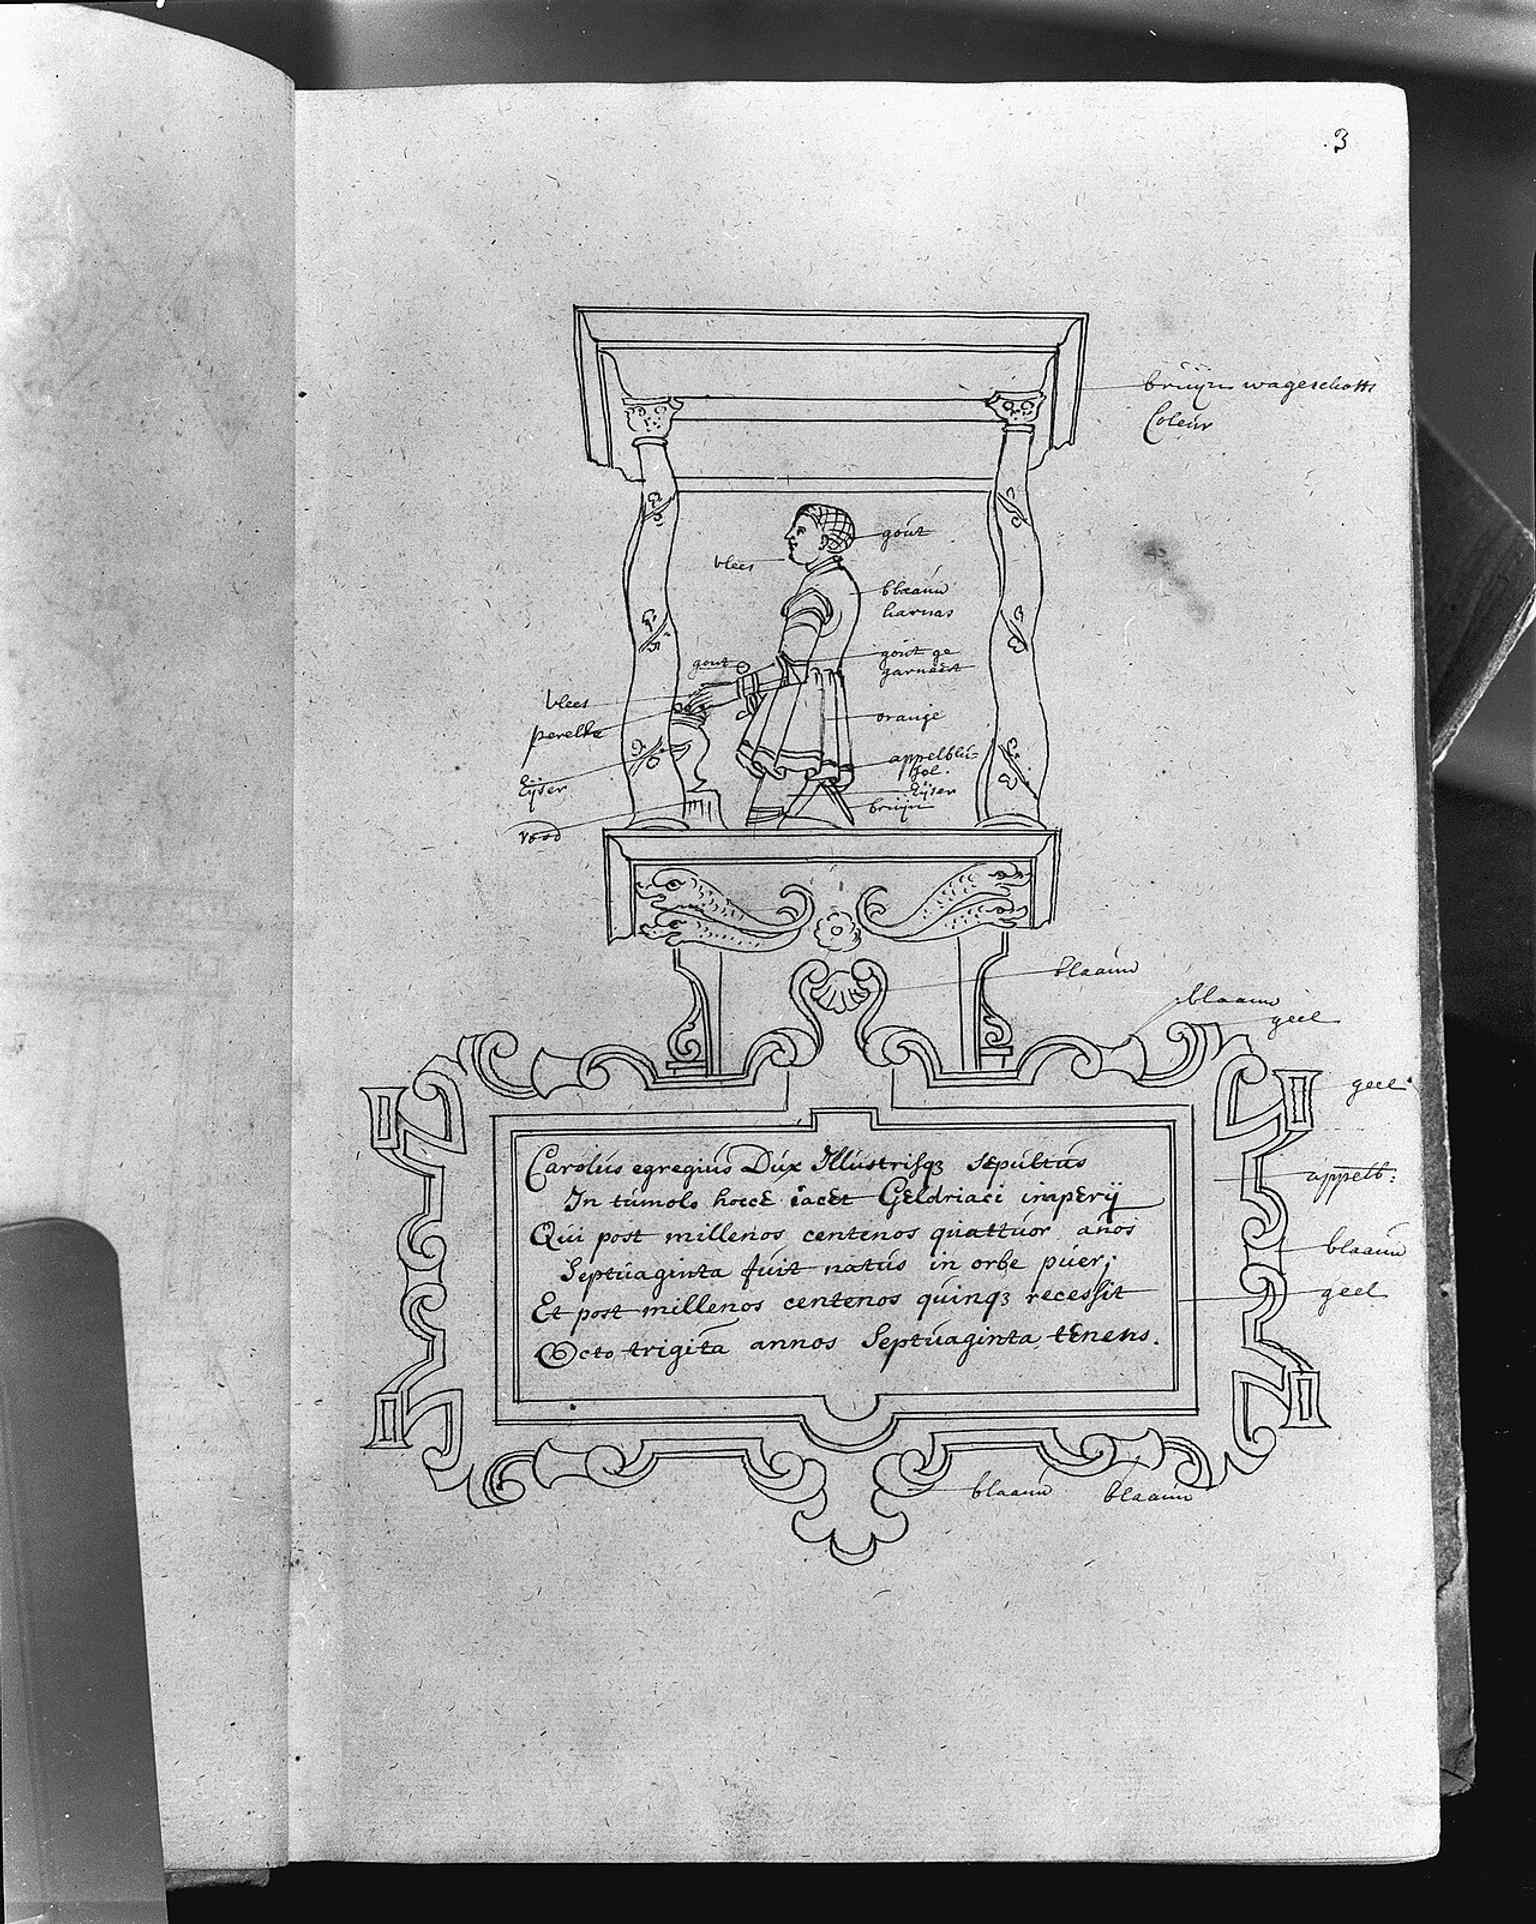 3
bruijn wageschotts
Coleur
gout
vlees
blaauw
harnas
gout
gout ge
garneert
vlees
orange
perelke
appelblu=
Eijser
Eijser
bruijn
rood
blaauw
blaauw
geel
geel
Carolus egregius Dux Illustrisqz sepultus
In tumolo hocce iacet Geldriaci imperij
appelb:
Qui post millenos centenos quattuor anos
blaauw
Septuaginta fuit natus in orbe puer;
Et post millenos centenos quinqz recessit
geel
Octo trigita annos Septuaginta tenens.
blaauw blaauw